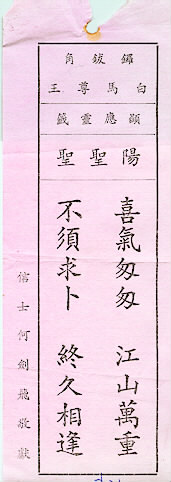 鑼鈸角
白馬尊王
顯應靈籤
陽聖聖
喜氣匆匆 江山萬重
不須求卜 終久相逢
信士何劍飛敬獻